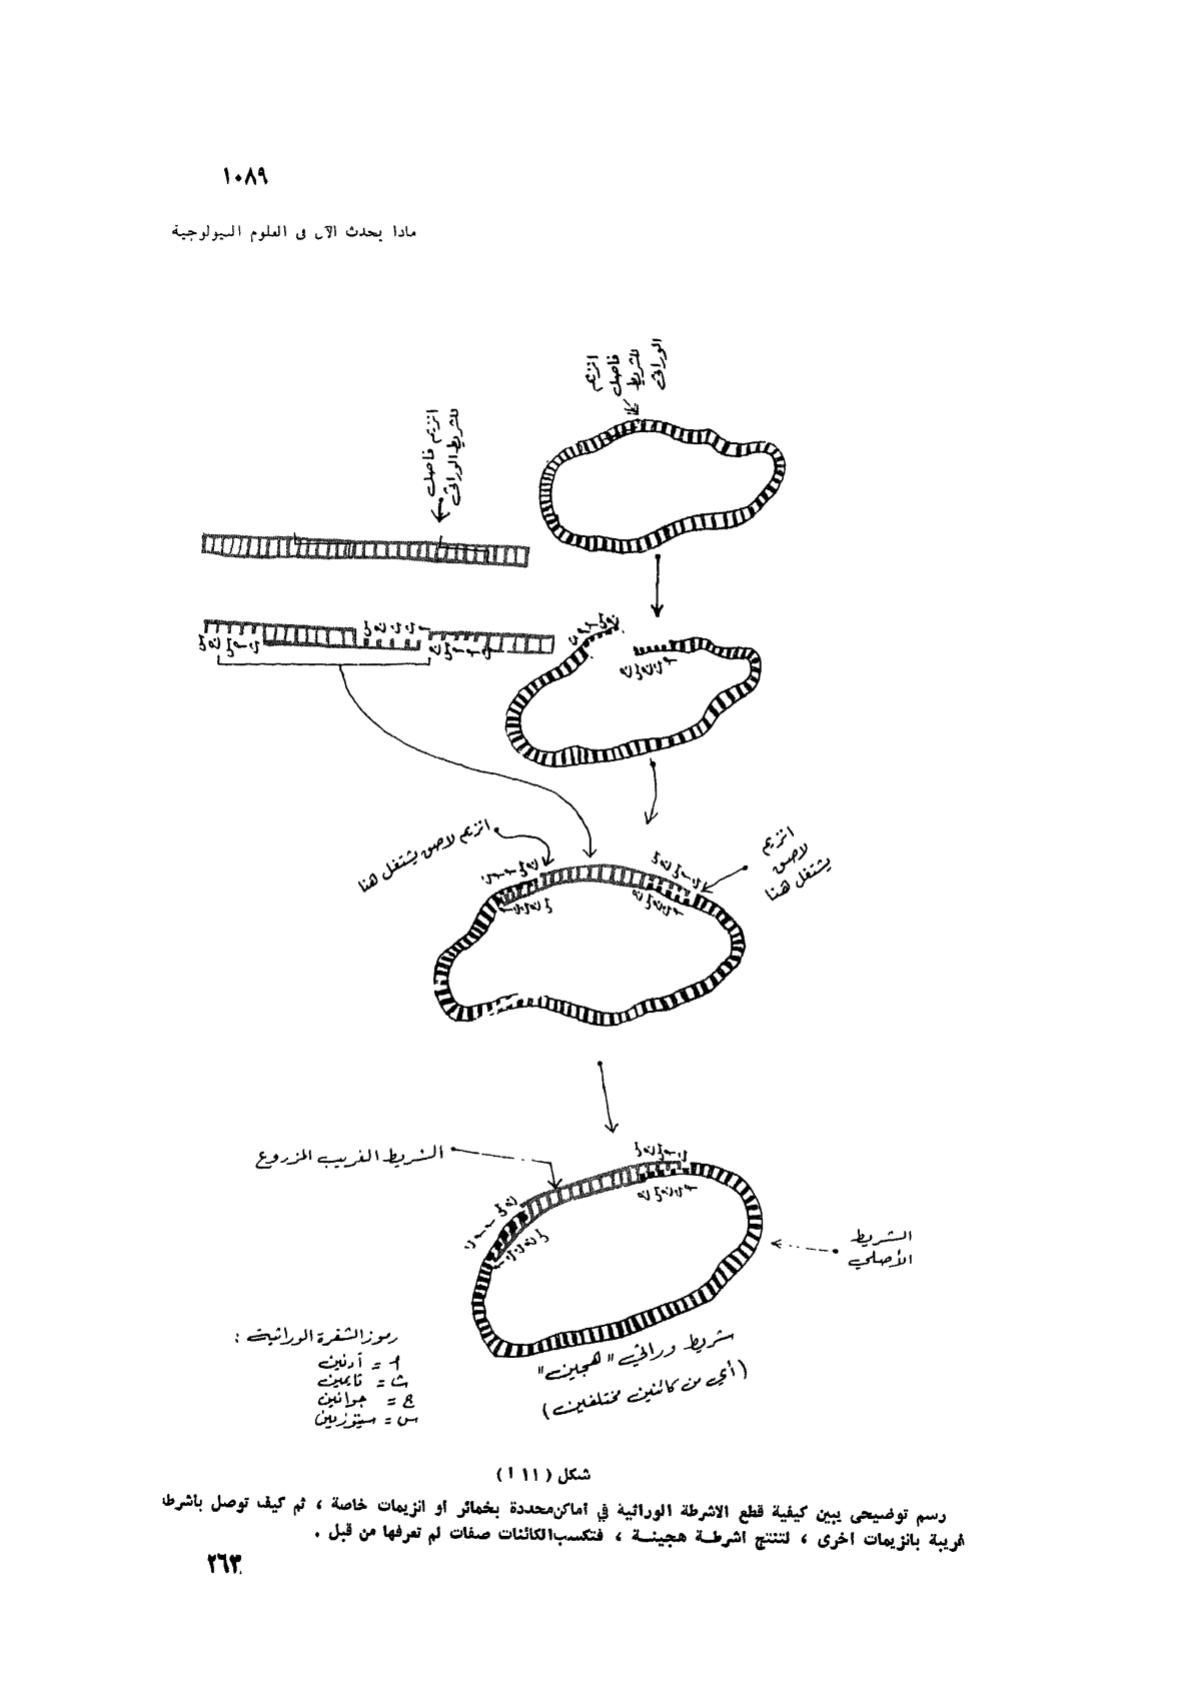 ١٠٨٩
ماذا يحدث الآن في العلوم البيولوجية
انزيم
فاصل
للشريط
الوراثى
انزيم فاصل
للشريط الوراثى
انزيم لاصق يشتغل هنا
انزيم
لاصق
يشتغل هنا
الشريط الغريب المزروع
الشريط
الأصلي
شريط وراثى "هجين"
(أي من كائنين مختلفين)
رموز الشفرة الوراثية :
أ = أدنين
ث = ثايمين
ج = جوانين
س = سيتوزين
شكل ( ١١ أ )
رسم توضيحى يبين كيفية قطع الاشرطة الوراثية في أماكن محددة بخمائر او انزيمات خاصة ، ثم كيف توصل بأشرطة
غريبة بانزيمات اخرى ، لتنتج اشرطة هجينة ، فتكسب الكائنات صفات لم تعرفها من قبل .
٢٦٣